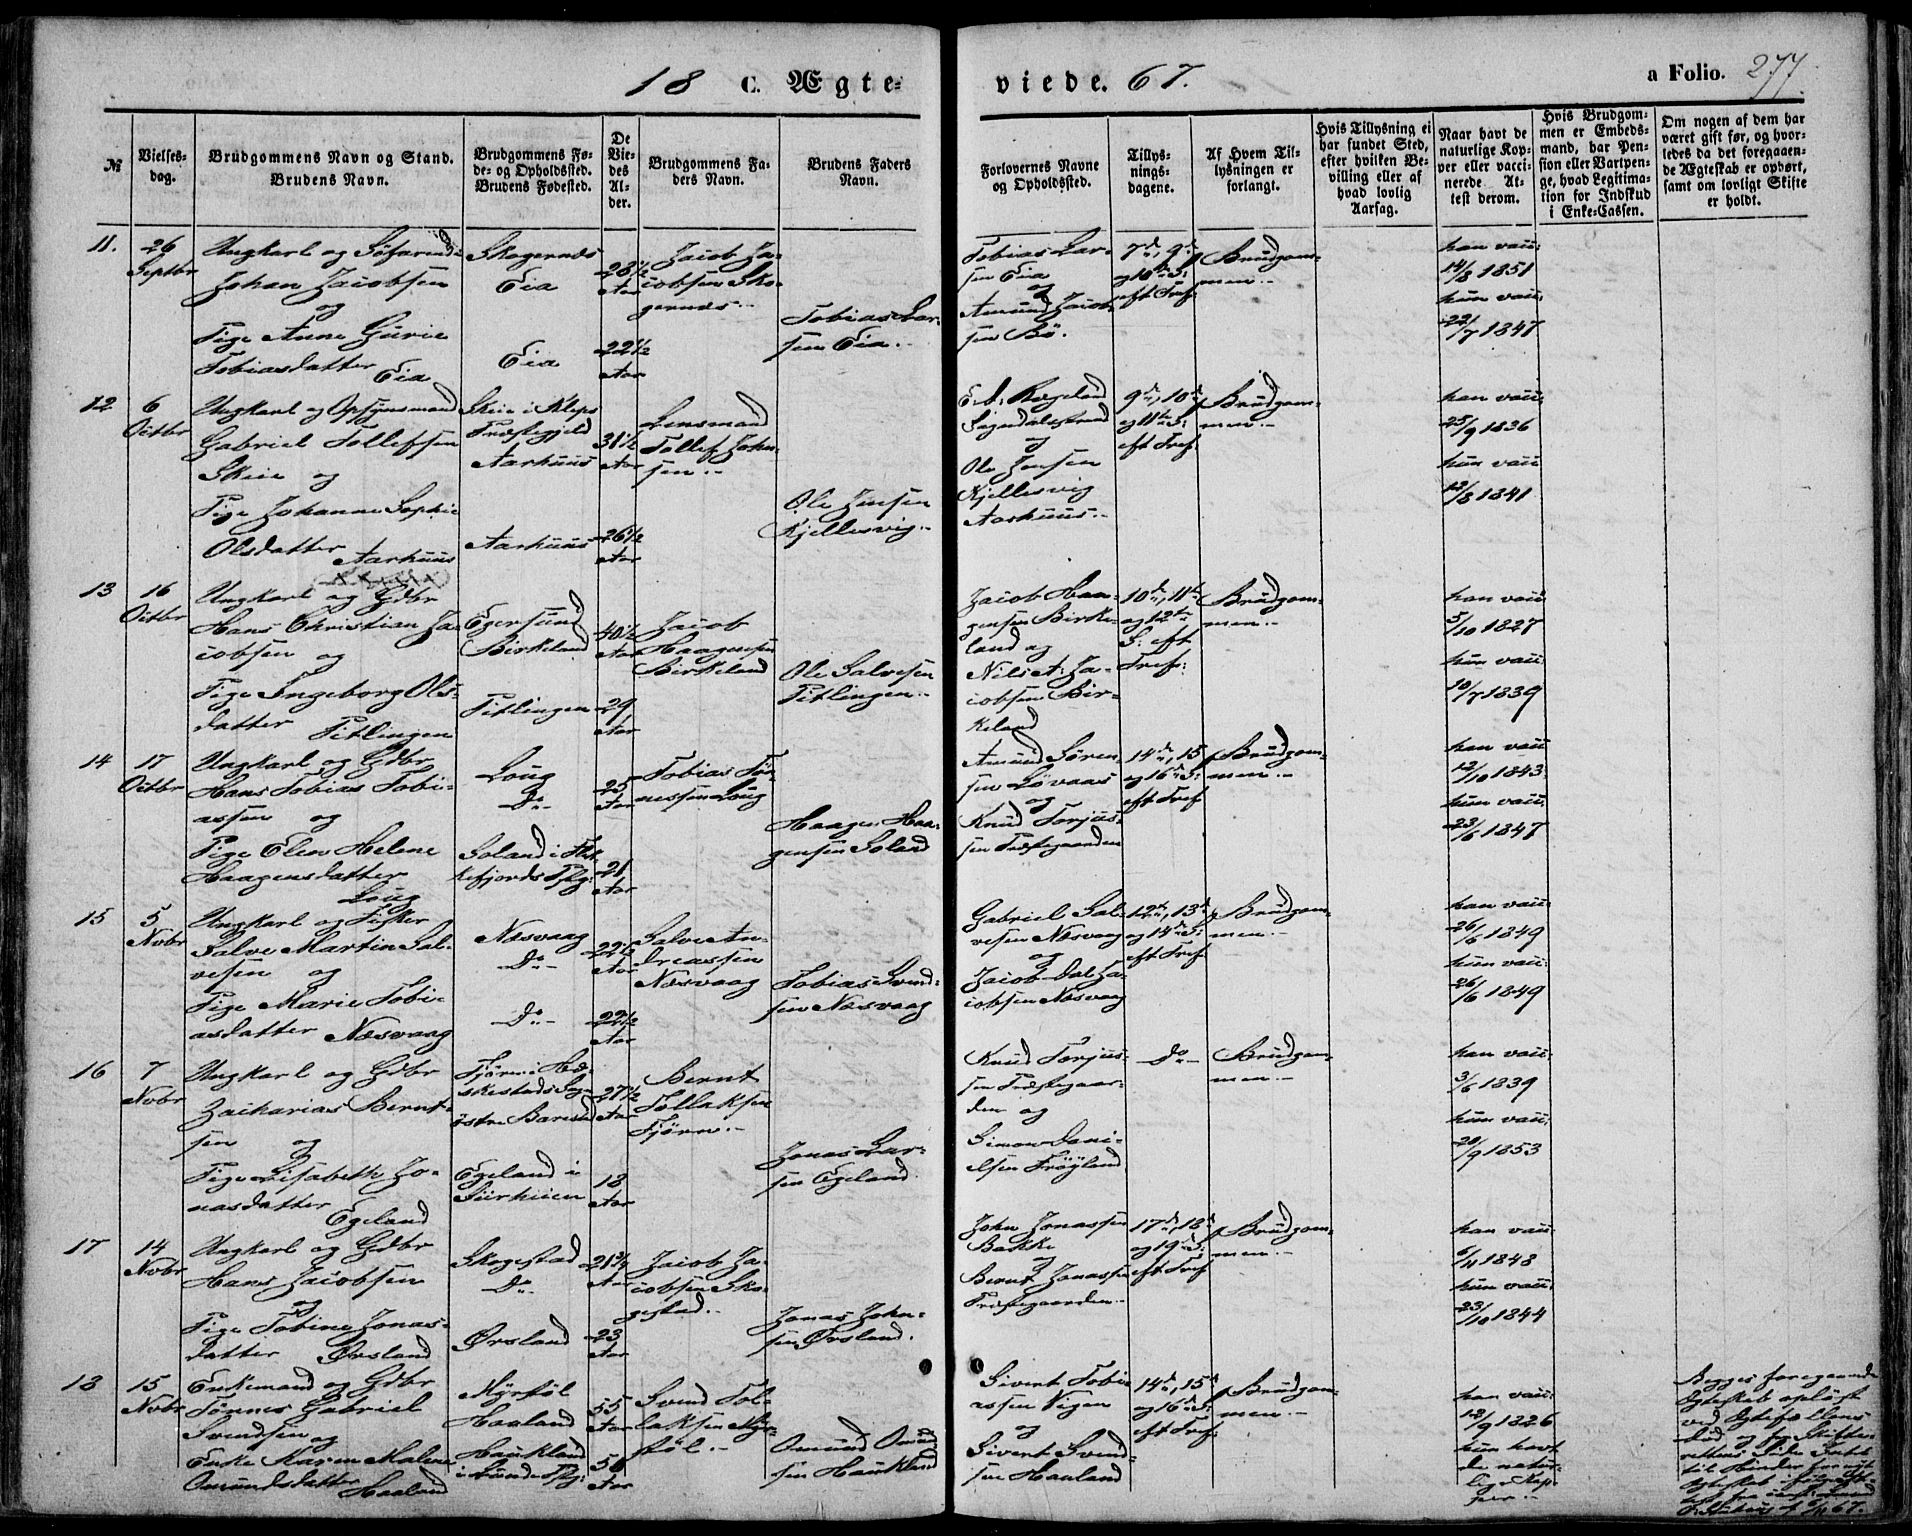 18 C. Ægte-
viede. 67.
a Folio. 277.
№
Vielses-
dag.
Brudgommens Navn og Stand.
Brudens Navn.
Brudgommens Fø-
de- og Opholdssted.
Brudens Fødested.
De
Vie-
des
Al-
der.
Brudgommens Fa-
ders Navn.
Brudens Faders
Navn.
Forlovernes Navne
og Opholdssted.
Tillys-
nings-
dagene.
Af Hvem Til-
lysningen er
forlangt.
Hvis Tillysning ei
har fundet Sted,
efter hvilken Be-
villing eller af
hvad lovlig
Aarsag.
Naar havt de
naturlige Kop-
per eller vacci-
nerede. At-
test derom.
Hvis Brudgom-
men er Embeds-
mand, har Pen-
sion eller Vartpen-
ge, hvad Legitima-
tion for Indskud
i Enke-Cassen.
Om nogen af dem har
været gift før, og hvor-
ledes da det foregaaen-
de Ægteskab er ophørt,
samt om lovligt Skifte
er holdt.
11.
26
Septbr
Ungkarl og Søfarende
Johan Jacobsen
og
Pige Anne Gurie
Tobiasdatter Eia
Skogernæs
Eia
Eia
28 1/2
Aar
22 1/2
Aar
Jacob Ja-
cobsen Sko-
gernæs.
Tobias Lar-
sen Eia.
Tobias Lar-
sen Eia
og
Amund Jacob-
sen Bö.
7de, 9de
og 10de S:
eft Tref.
Brudgom-
men.
han vacc:
14/8 1851
hun vacc:
22/7 1847
12
6
Octbr
Ungkarl og Opsynsmand
Gabriel Tollefsen
Skeie og
Pige Johanne Sophie
Olsdatter Aarhuus
Skeie i Kleps
Præstegjeld
Aarhuus
Aarhuus
31 1/2
Aar
26 1/2
Aar
Lensmand
Tollef John-
sen.
Ole Jensen
Kjellesvig.
E. b. Rægeland
Sogndalsstrand
og
Ole Jensen
Kjellesvig
Aarhuus.
9de, 10de
og 11te S:
eft Tref:
Brudgom-
men.
han vacc:
25/9 1836
hun vacc
12/8 1841
13
16
Octbr
Ungkarl og Gdbr
Hans Christian Ja-
cobsen og
Pige Ingeborg Ols-
datter Pitlingen
Egersund
Birkeland
Pitlingen
40 1/2
Aar
29
Aar
Jacob
Haagensen
Birkeland
Ole Salvesen
Pitlingen.
Jacob Haa-
gensen Birke-
land og
Nils A: Ja-
cobsen Bir-
keland
10de, 11te
og 12te
S: eft
Tref:
Brudgom-
men.
han vacc
5/10 1827
hun vacc
10/7 1839
14
17
Octbr
Ungkarl og Gdbr
Hans Tobias Tobi-
assen og
Pige Elen Helene
Haagensdatter
Loug
Loug
Do
Soland i Flek-
kefjords Psgj:
25
Aar
21
Aar
Tobias Tøn-
nessen Loug
Haagen Haa-
gensen Soland
Amund Søren-
sen Løvaas
og
Knud Torjus-
sen Præstegaarden
14de, 15
og 16de S:
eft Tref
Brudgom-
men.
han vacc
12/10 1843
hun vacc.
23/6 1847
15
5
Novbr
Ungkarl og Fisker
Salve Martin Sal-
vesen og
Pige Marie Tobi-
asdatter Næsvaag
Næsvaag
Do
Do
22 1/2
Aar
22 1/2
Aar
Salve An-
dreassen
Næsvaag
Tobias Svend-
sen Næsvaag
Gabriel Sal-
vesen Næsvaag
og
Jacob Dal Ja-
cobsen Næsvaag
12te, 13de
og 14de S:
eft Tref.
Brudgom-
men.
han vacc:
26/6 1849
hun vacc:
26/6 1849
16
7
Novbr
Ungkarl og Gdbr
Zacharias Bernt-
sen og
Pige Lisabeth Jo-
nasdatter
Egeland
Fjørn i He-
skestads Sogn
østre Barstad
Egeland i
Siirhuen
27 1/2
Aar
18
Aar
Bernt
Tollaksen
Fjørn.
Jonas Lar-
sen Egeland
Knud Torjus-
sen Præstegaar-
den og
Simon Dani-
elsen Frøyland
Do
Brudgom-
men.
han vacc:
3/6 1839
hun vacc:
20/9 1853
17
14
Novbr
Ungkarl og Gdbr
Hans Jacobsen
og
Pige Tobine Jonas-
datter Ørsland
Skogestad
Do
Ørsland
21 3/4
Aar
23
Aar
Jacob Ja-
cobsen Sko-
gestad.
Jonas John-
sen Ørsland.
John Jonassen
Bakke
og
Bernt Jonassen
Præstegaarden.
17de, 18de
og 19de S:
eft Tref
Brudgom-
men.
han vacc
6/11 1848
hun vacc:
23/10 1844
18
15
Novbr
Enkemand og Gdbr
Tønnes Gabriel
Svendsen og
Enke Karen Malene
Omundsdatter
Haaland
Myrstøl
Haaland
Haukland
i Lunde Psgj:
55
Aar
56
Aar
Svend Tol-
laksen Myr-
støl.
Omund Omund-
sen Haukland
Sivert Tobi-
assen Vigen
og
Sivert Svend-
sen Haaland
14de, 15de
og 16de S:
eft Tref:
Brudgom-
men.
han vacc:
12/9 1826
hun havt
de natur-
lige Kop-
per.
Begges foregaaende
Ægteskab opløst
ved Ægtefællens
Død